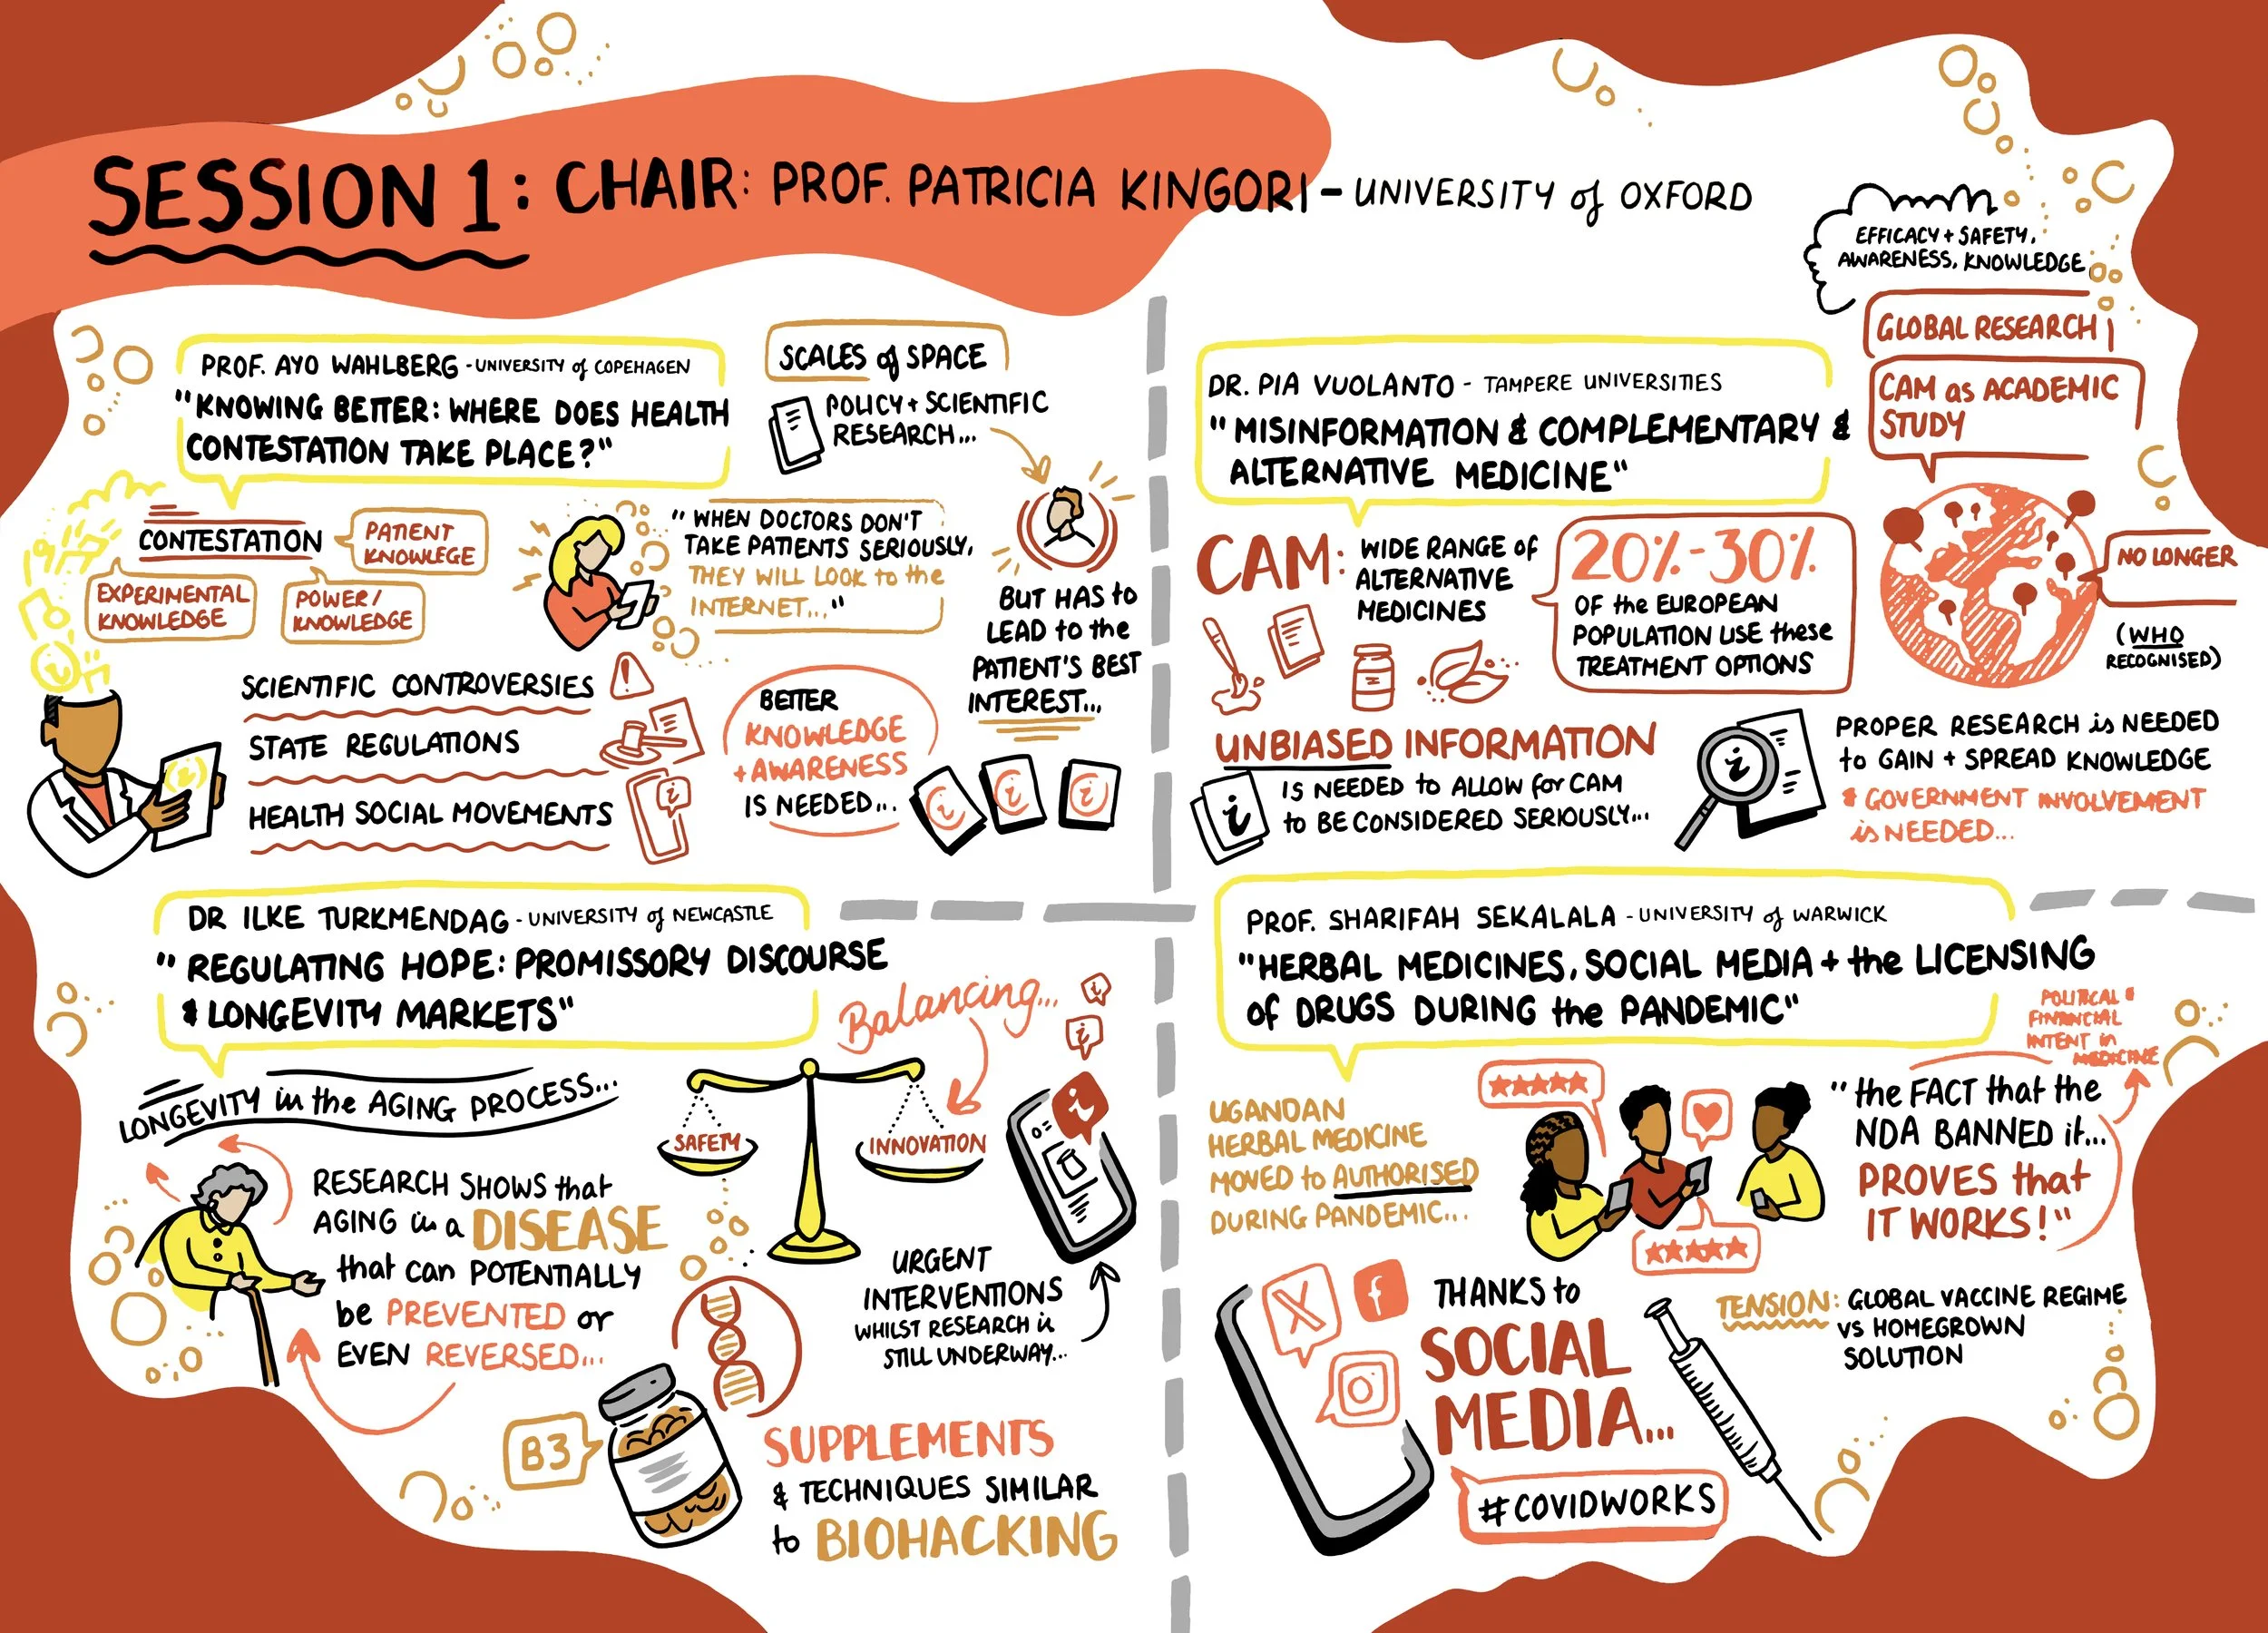 SESSION 1: CHAIR: PROF. PATRICIA KINGORI - UNIVERSITY of OXFORD
PROF. AYO WAHLBERG - UNIVERSITY of COPEHAGEN
"KNOWING BETTER: WHERE DOES HEALTH
CONTESTATION TAKE PLACE?"
SCALES of SPACE
POLICY + SCIENTIFIC
RESEARCH...
BUT HAS to
LEAD to the
PATIENT'S BEST
INTEREST...
CONTESTATION
PATIENT
KNOWLEGE
EXPERIMENTAL
KNOWLEDGE
POWER/
KNOWLEDGE
"WHEN DOCTORS DON'T
TAKE PATIENTS SERIOUSLY,
THEY WILL LOOK to the
INTERNET..."
SCIENTIFIC CONTROVERSIES
STATE REGULATIONS
HEALTH SOCIAL MOVEMENTS
BETTER
KNOWLEDGE
+ AWARENESS
IS NEEDED...
i
i
i
DR. PIA VUOLANTO - TAMPERE UNIVERSITIES
"MISINFORMATION & COMPLEMENTARY &
ALTERNATIVE MEDICINE"
EFFICACY + SAFETY,
AWARENESS, KNOWLEDGE
GLOBAL RESEARCH
CAM as ACADEMIC
STUDY
NO LONGER
(WHO
RECOGNISED)
CAM:
WIDE RANGE of
ALTERNATIVE
MEDICINES
20%-30%
OF the EUROPEAN
POPULATION USE these
TREATMENT OPTIONS
UNBIASED INFORMATION
IS NEEDED to ALLOW for CAM
to BE CONSIDERED SERIOUSLY...
i
i
PROPER RESEARCH is NEEDED
to GAIN + SPREAD KNOWLEDGE
& GOVERNMENT INVOLVEMENT
is NEEDED...
DR ILKE TURKMENDAG - UNIVERSITY of NEWCASTLE
"REGULATING HOPE: PROMISSORY DISCOURSE
& LONGEVITY MARKETS"
LONGEVITY in the AGING PROCESS...
RESEARCH SHOWS that
AGING is a DISEASE
that can POTENTIALLY
be PREVENTED or
EVEN REVERSED...
Balancing...
SAFETY
INNOVATION
i
i
i
URGENT
INTERVENTIONS
WHILST RESEARCH is
STILL UNDERWAY...
B3
SUPPLEMENTS
& TECHNIQUES SIMILAR
to BIOHACKING
PROF. SHARIFAH SEKALALA - UNIVERSITY of WARWICK
"HERBAL MEDICINES, SOCIAL MEDIA + the LICENSING
of DRUGS DURING the PANDEMIC"
POLITICAL &
FINANCIAL
INTENT in
MEDICINE
UGANDAN
HERBAL MEDICINE
MOVED to AUTHORISED
DURING PANDEMIC...
"the FACT that the
NDA BANNED it...
PROVES that
IT WORKS!"
X
f
THANKS to
SOCIAL
MEDIA...
#COVIDWORKS
TENSION: GLOBAL VACCINE REGIME
VS HOMEGROWN
SOLUTION